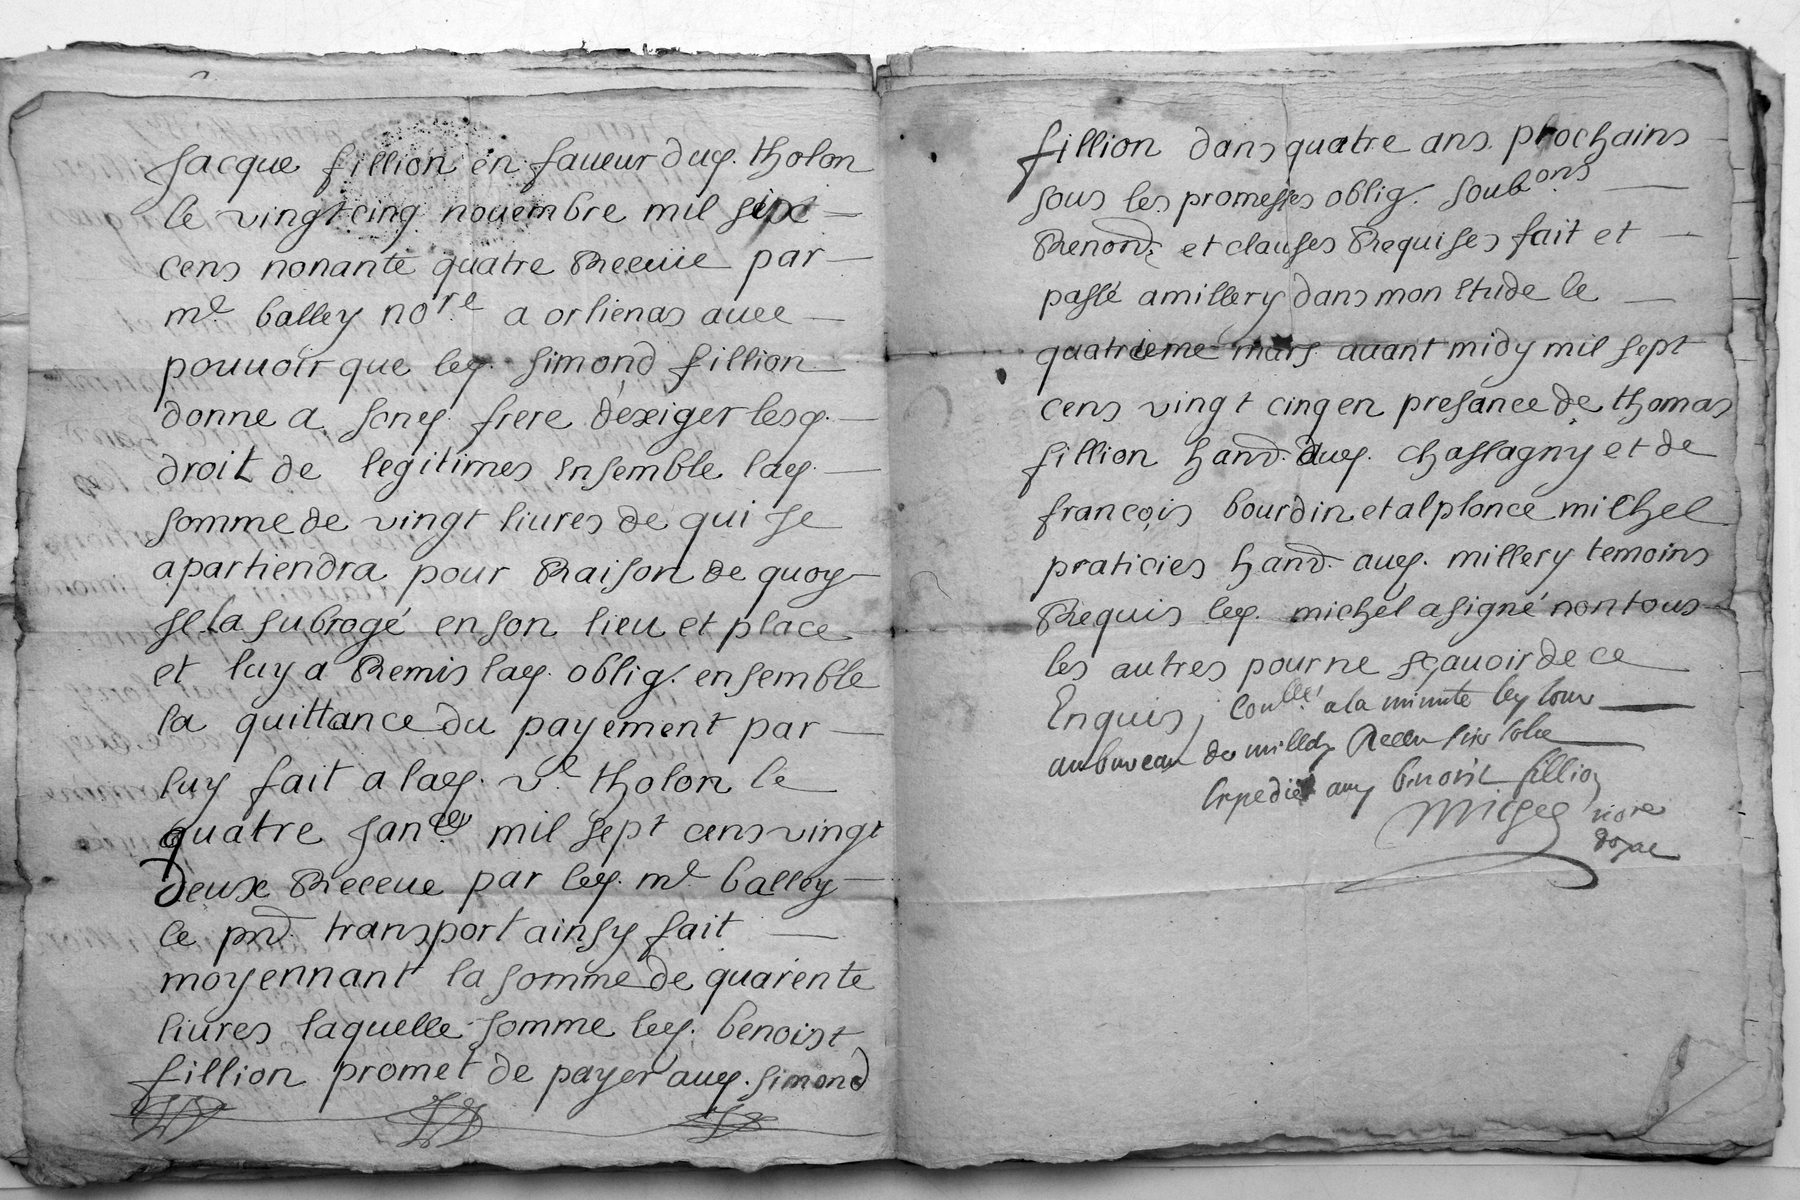 Jacque fillion en faueur dud. tholon
le vingt cinq nouembre mil sept
cens nonante quatre Receue par
me balley nore a orlienas auec
pouuoir que led. simond fillion
donne a sond. frere déxiger lesd.
droit de legitimes ensemble lad.
somme de vingt liures de qui se
apartiendra pour Raison de quoy
se la subrogé en son lieu et place
et luy a Remis lad. oblig. ensemble
la quittance du payement par
luy fait a lad. ve tholon le
quatre Janer mil sept cens vingt
deux Receue par led. me balley
le pnt transport ainsy fait
moyennant la somme de quarente
liures laquelle somme led. benoist
fillion promet de payer aud. simond
fillion dans quatre ans prochains
sous les promesses oblig. soubons
Renond. et clauses Requises fait et
passé a millery dans mon Etude le
quatrieme mars auant midy mil sept
cens vingt cinq en presance de thomas
fillion hand. aud. chassagny et de
françois bourdin et alphonce michel
praticies hand. aud. millery temoins
Requis led. michel a signé non tous
les autres pour ne sçauoir de ce
Enquis, conllé a la minute led jour
au bureau de millery Receu six sols
Expedié aud benoist fillion
Michel nore
royal